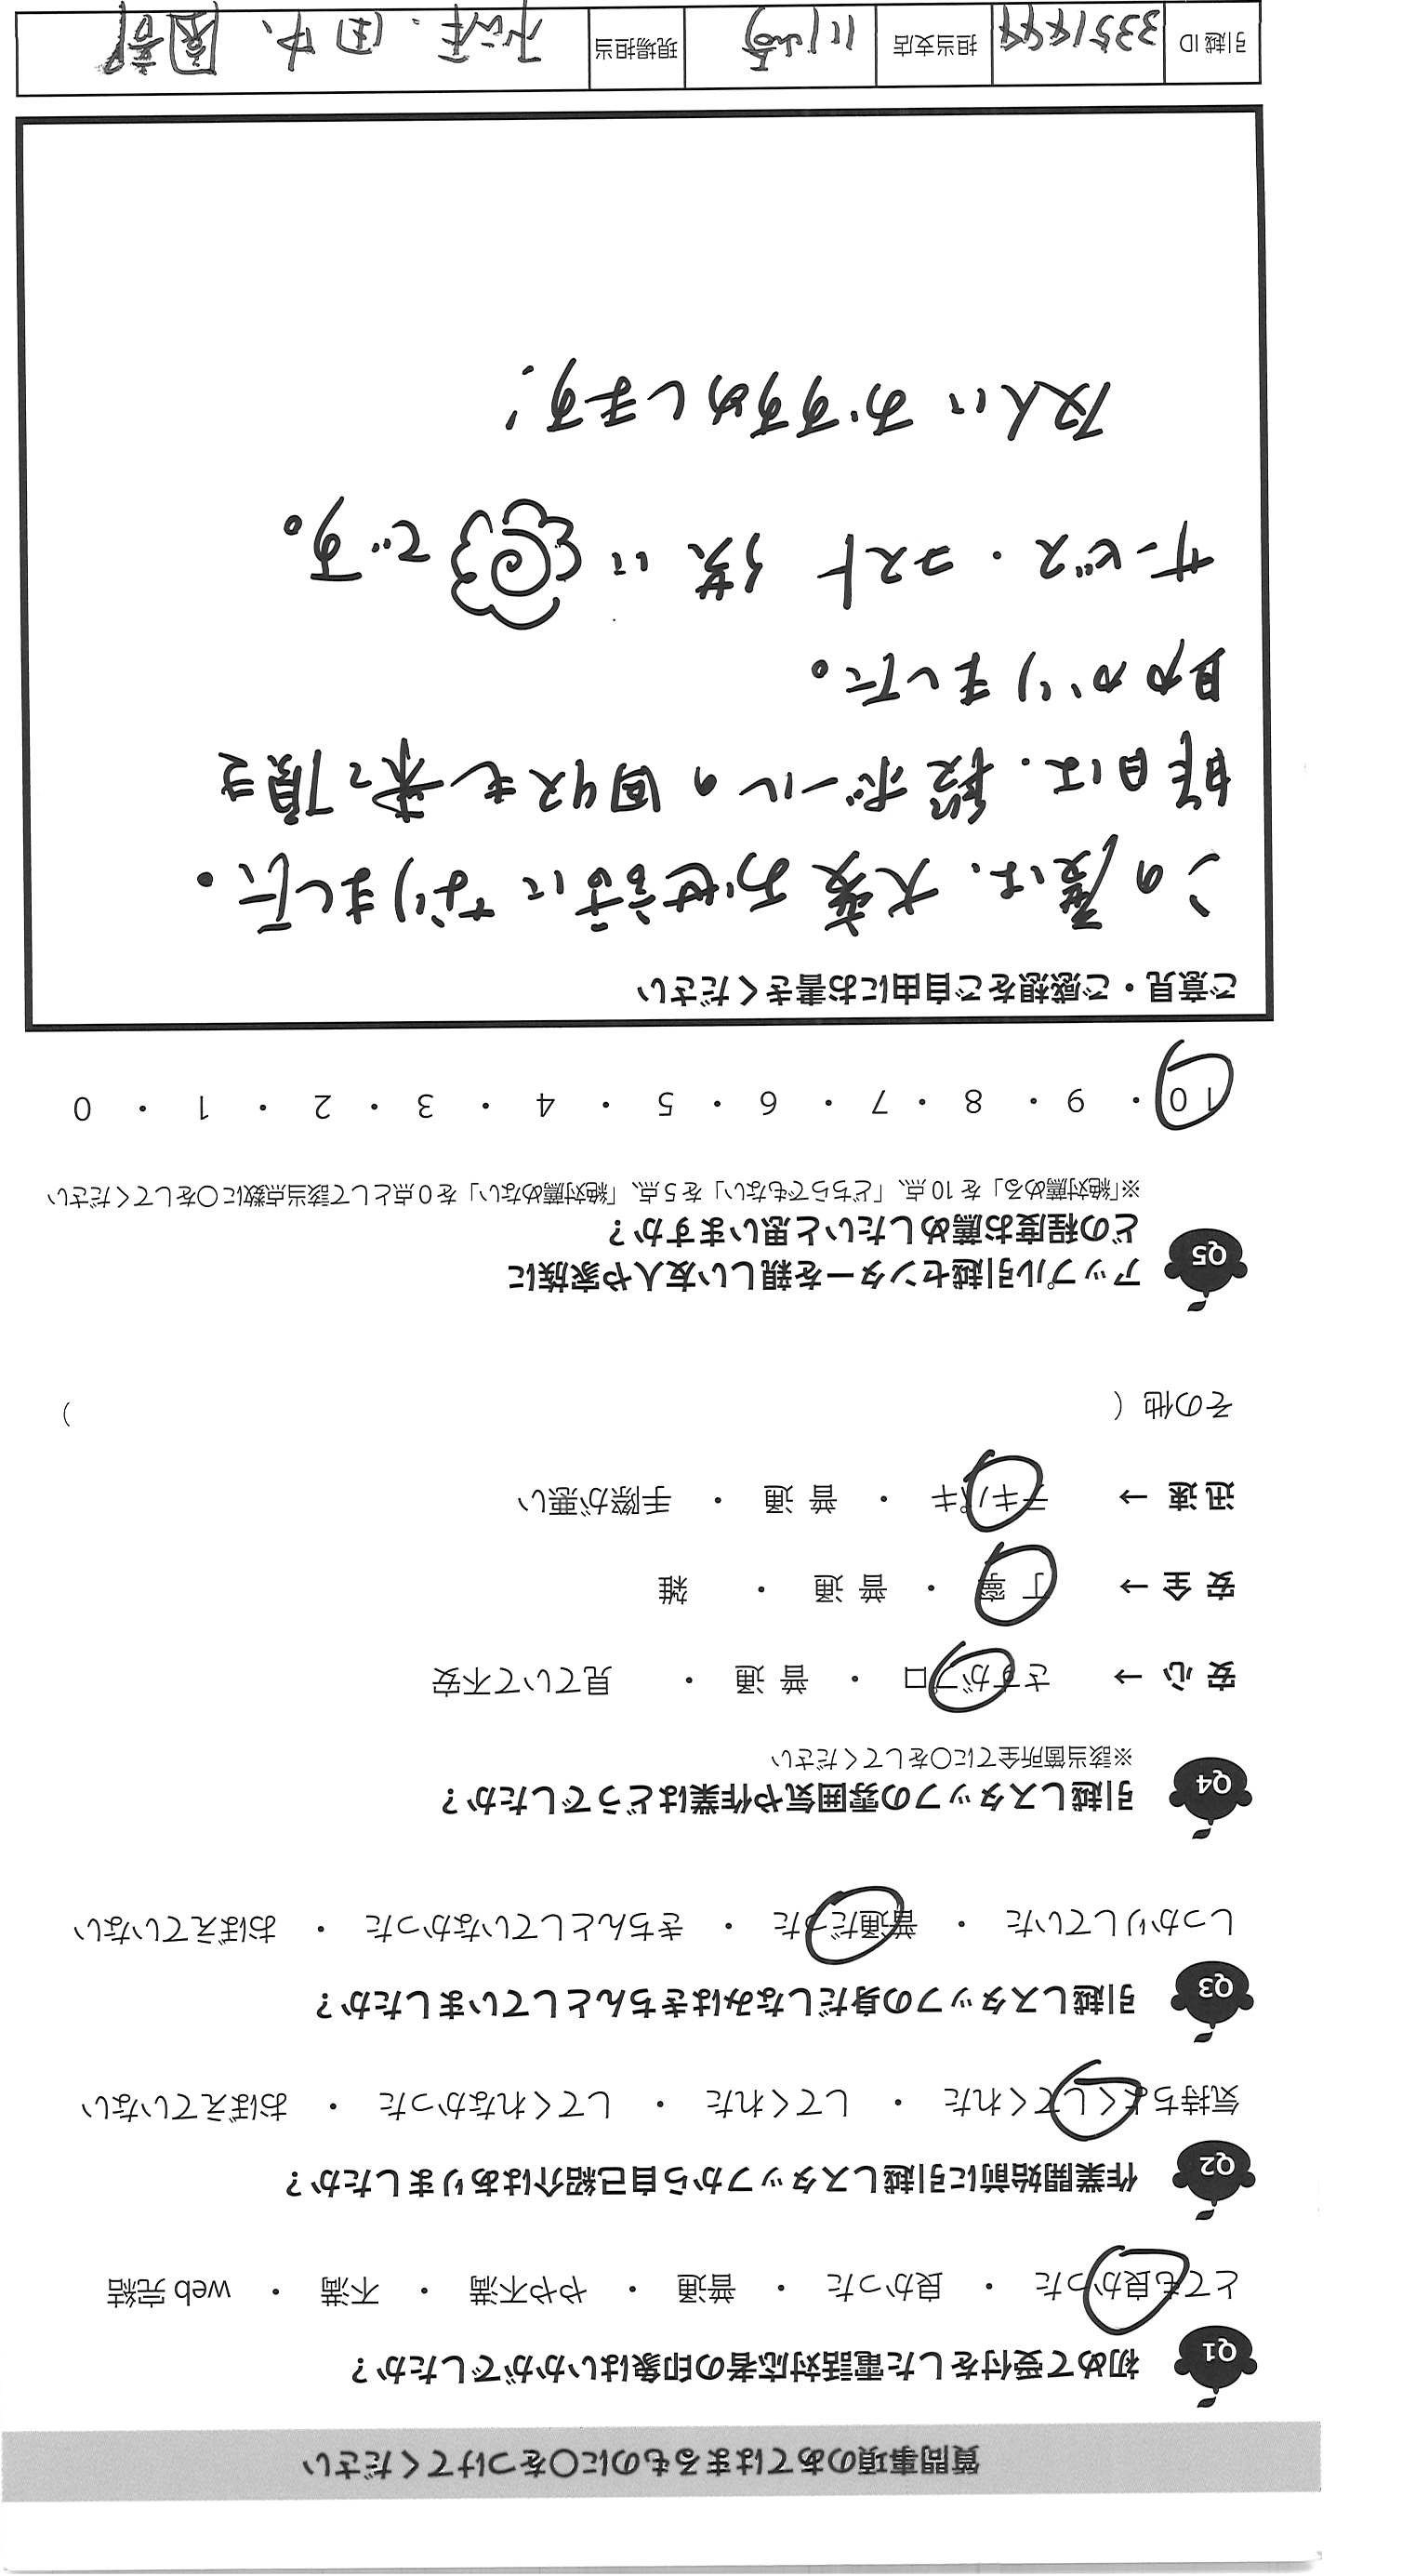 質問事項のあてはまるものに〇をつけてください
Q1 初めて受付をした電話対応者の印象はいかがでしたか？
とても良かった ・ 良かった ・ 普通 ・ やや不満 ・ 不満 ・ web 完結
Q2 作業開始前に引越しスタッフから自己紹介はありましたか？
気持ちよくしてくれた ・ してくれた ・ してくれなかった ・ おぼえていない
Q3 引越しスタッフの身だしなみはきちんとしていましたか？
しっかりしていた ・ 普通だった ・ きちんとしていなかった ・ おぼえていない
Q4 引越しスタッフの雰囲気や作業はどうでしたか？
※該当箇所全てに〇をしてください
安 心 → さすがプロ ・ 普 通 ・ 見ていて不安
安 全 → 丁 寧 ・ 普 通 ・ 雑
迅 速 → テキパキ ・ 普 通 ・ 手際が悪い
その他（ ）
Q5 アップル引越センターを親しい友人や家族に
どの程度お薦めしたいと思いますか？
※「絶対薦める」を 10 点、「どちらでもない」を 5 点、「絶対薦めない」を 0 点として該当点数に〇をしてください
10 ・ 9 ・ 8 ・ 7 ・ 6 ・ 5 ・ 4 ・ 3 ・ 2 ・ 1 ・ 0
ご意見・ご感想をご自由にお書きください
この度は、大変お世話になりました。
昨日は、段ボールの回収も来て頂き
助かりました。
サービス・コスト 共に です。
友人に おすすめします!
引越 ID 3351499 担当支店 川崎 現場担当 田中、園部